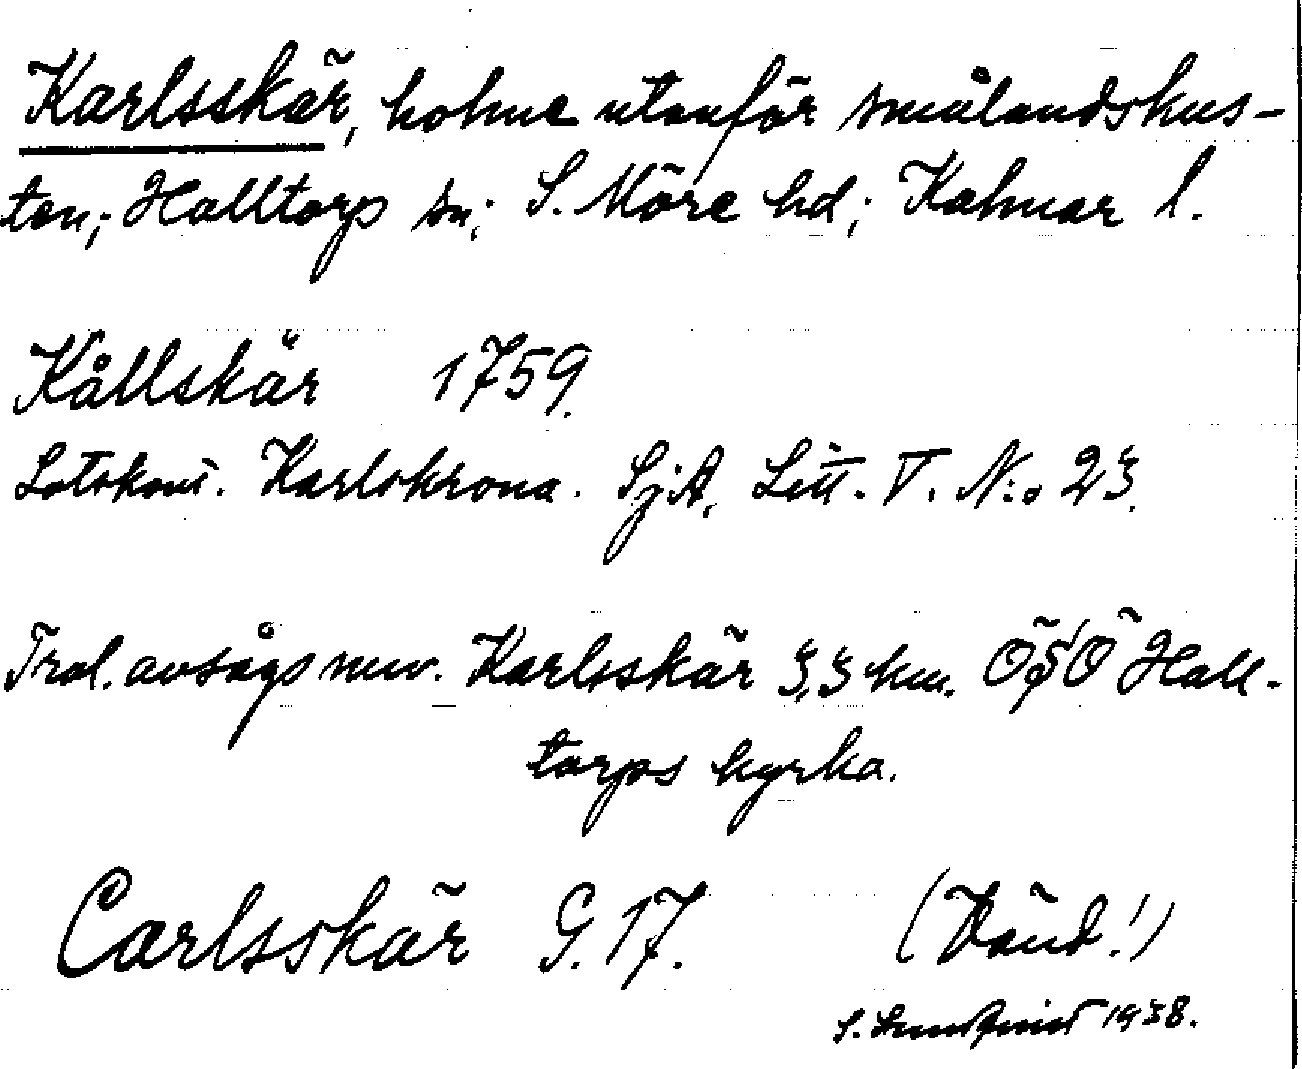 Karlsskär, holme utanför smålandskus-
ten; Halltorp sn; S. Möre hd; Kalmar l.
Kållskär 1759.
Lotskont. Karlskrona. SjA, Litt. V. N:o 23.
Trol. avsågs nuv. Karlsskär 3,3 km. ÖSÖ Hall-
torps kyrka.
Carlsskär G. 17. (Vänd!)
S. Lundqvist 1938.